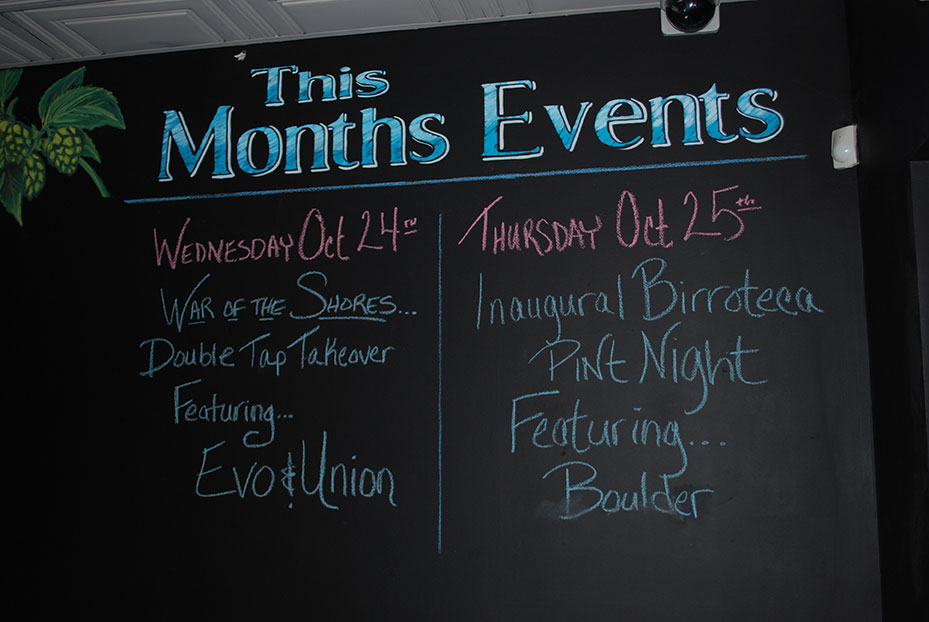 This
Months Events
Wednesday Oct 24TH
War of the Shores...
Double Tap Takeover
Featuring...
Evo & Union
Thursday Oct 25th
Inaugural Birroteca
Pint Night
Featuring....
Boulder